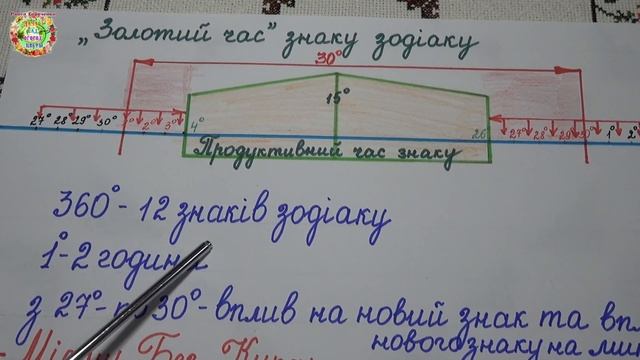 „Золотий час” знаку зодіаку
30°
15°
4°
26
27° 28 29° 30° 1° 2° 3°
27° 28° 29° 30° 1° 2
Продуктивний час знаку
360° - 12 знаків зодіаку
1° - 2 години
з 27° - по 30° - вплив на новий знак та впл
нового знаку на ми
Місяць Без Курсу